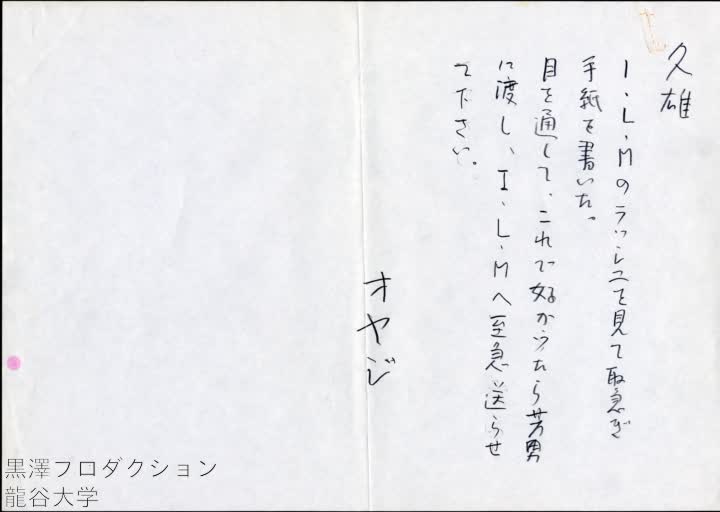 久雄
I・L・Mのラッシュを見て取急ぎ
手紙を書いた。
目を通して、これで好かつたら芳男
に渡し、I・L・Mへ至急送らせ
て下さい。
オヤジ
黒澤フロダクション
龍谷大学